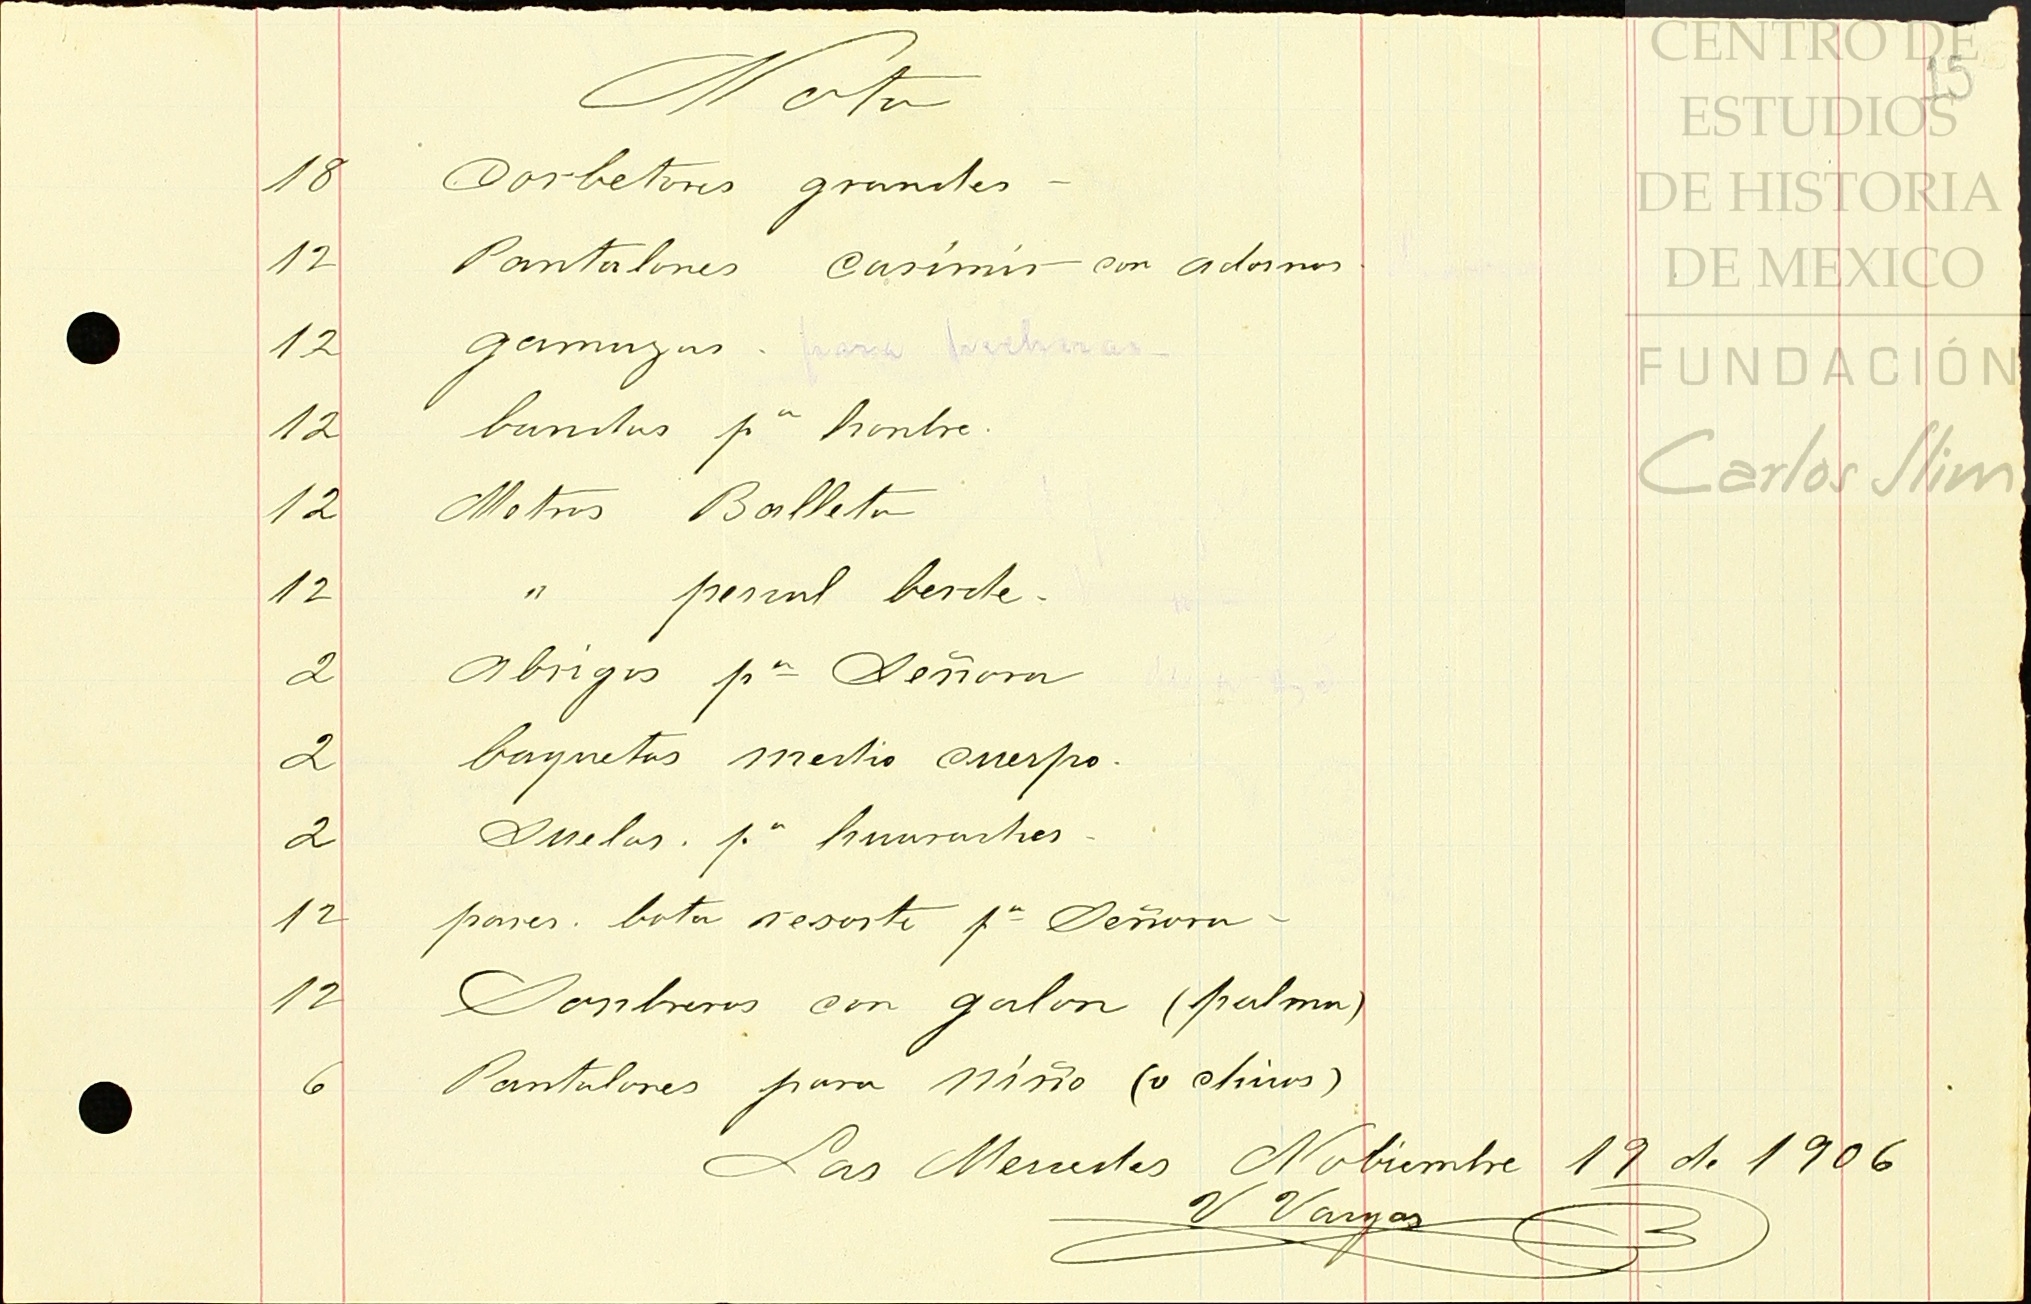 Nota
CENTRO DE
ESTUDIOS
DE HISTORIA
DE MEXICO
FUNDACIÓN
Carlos Slim
15
18 Corbetores grandes -
12 Pantalones casimir con adornos.
12 gamuzas. para pecheras -
12 bandas pª honbre.
12 Metros Balleta
12 " percal berde -
2 Abrigos pª Señora
2 baquetas medio cuerpo.
2 Suelas. pª huaraches -
12 pares. bota resorte pª Señora -
12 Sonbreros con galon (palma)
6 Pantalones para niño (o chicos)
Las Mercedes Nobiembre 19 de 1906
V Vargas